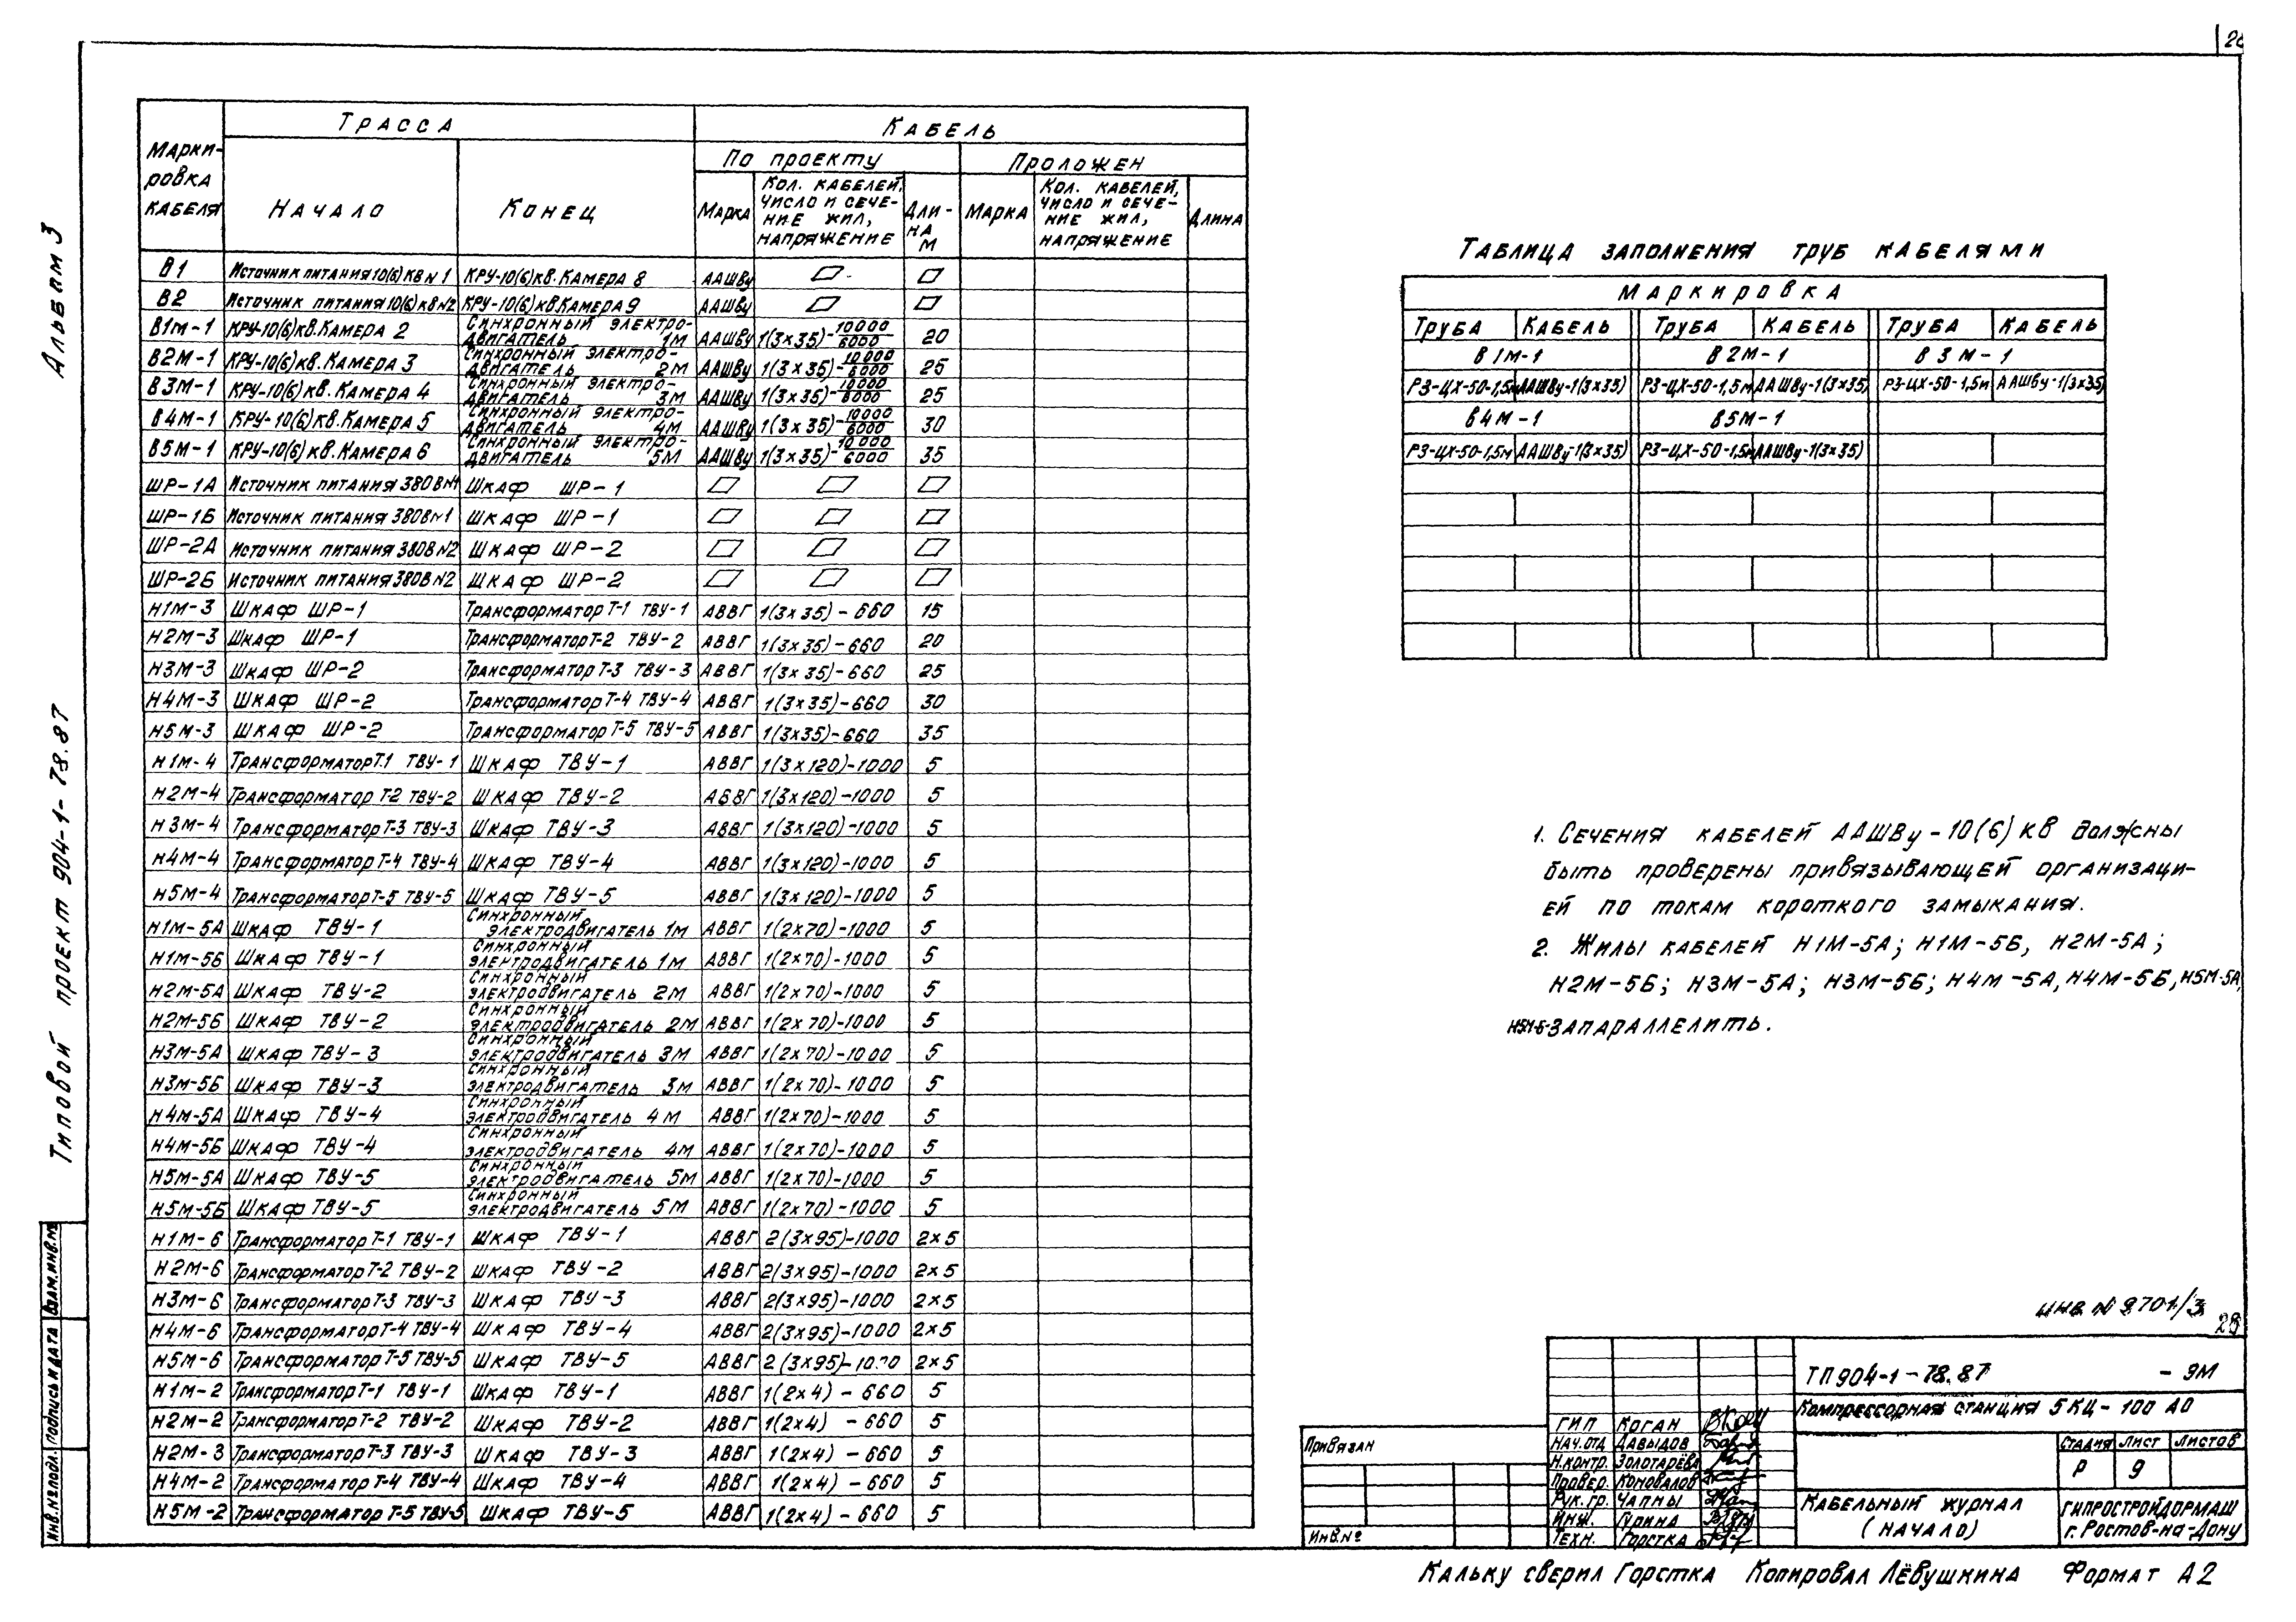 Альбом 3
Типовой проект 904-1-78.87
Марки-ровка кабеля | Трасса | Кабель
Начало | Конец | По проекту | Проложен
Марка | Кол. кабелей, число и сече-ние жил, напряжение | Дли-на м | Марка | Кол. кабелей, число и сече-ние жил, напряжение | Длина
В1 | Источник питания 10(6) кв N 1 | КРУ-10(6) кв. Камера 8 | ААШВу
В2 | Источник питания 10(6) кв N2 | КРУ-10(6) кв. Камера 9 | ААШВу
В1М-1 | КРУ-10(6) кв. Камера 2 | Синхронный электро-двигатель 1М | ААШВу | 1(3×35)-10000/6000 | 20
В2М-1 | КРУ-10(6) кв. Камера 3 | Синхронный электро-двигатель 2М | ААШВу | 1(3×35)-10000/6000 | 25
В3М-1 | КРУ-10(6) кв. Камера 4 | Синхронный электро-двигатель 3М | ААШВу | 1(3×35)-10000/6000 | 25
В4М-1 | КРУ-10(6) кв. Камера 5 | Синхронный электро-двигатель 4М | ААШВу | 1(3×35)-10000/6000 | 30
В5М-1 | КРУ-10(6) кв. Камера 6 | Синхронный электро-двигатель 5М | ААШВу | 1(3×35)-10000/6000 | 35
ШР-1А | Источник питания 380В N1 | Шкаф ШР-1
ШР-1Б | Источник питания 380В N1 | Шкаф ШР-1
ШР-2А | Источник питания 380В N2 | Шкаф ШР-2
ШР-2Б | Источник питания 380В N2 | Шкаф ШР-2
Н1М-3 | Шкаф ШР-1 | Трансформатор Т-1 ТВУ-1 | АВВГ | 1(3×35)-660 | 15
Н2М-3 | Шкаф ШР-1 | Трансформатор Т-2 ТВУ-2 | АВВГ | 1(3×35)-660 | 20
Н3М-3 | Шкаф ШР-2 | Трансформатор Т-3 ТВУ-3 | АВВГ | 1(3×35)-660 | 25
Н4М-3 | Шкаф ШР-2 | Трансформатор Т-4 ТВУ-4 | АВВГ | 1(3×35)-660 | 30
Н5М-3 | Шкаф ШР-2 | Трансформатор Т-5 ТВУ-5 | АВВГ | 1(3×35)-660 | 35
Н1М-4 | Трансформатор Т.1 ТВУ-1 | Шкаф ТВУ-1 | АВВГ | 1(3×120)-1000 | 5
Н2М-4 | Трансформатор Т-2 ТВУ-2 | Шкаф ТВУ-2 | АБВГ | 1(3×120)-1000 | 5
Н3М-4 | Трансформатор Т-3 ТВУ-3 | Шкаф ТВУ-3 | АВВГ | 1(3×120)-1000 | 5
Н4М-4 | Трансформатор Т-4 ТВУ-4 | Шкаф ТВУ-4 | АВВГ | 1(3×120)-1000 | 5
Н5М-4 | Трансформатор Т-5 ТВУ-5 | Шкаф ТВУ-5 | АВВГ | 1(3×120)-1000 | 5
Н1М-5А | Шкаф ТВУ-1 | Синхронный электродвигатель 1М | АВВГ | 1(2×70)-1000 | 5
Н1М-5Б | Шкаф ТВУ-1 | Синхронный электродвигатель 1М | АВВГ | 1(2×70)-1000 | 5
Н2М-5А | Шкаф ТВУ-2 | Синхронный электродвигатель 2М | АВВГ | 1(2×70)-1000 | 5
Н2М-5Б | Шкаф ТВУ-2 | Синхронный электродвигатель 2М | АВВГ | 1(2×70)-1000 | 5
Н3М-5А | Шкаф ТВУ-3 | Синхронный электродвигатель 3М | АВВГ | 1(2×70)-1000 | 5
Н3М-5Б | Шкаф ТВУ-3 | Синхронный электродвигатель 3М | АВВГ | 1(2×70)-1000 | 5
Н4М-5А | Шкаф ТВУ-4 | Синхронный электродвигатель 4М | АВВГ | 1(2×70)-1000 | 5
Н4М-5Б | Шкаф ТВУ-4 | Синхронный электродвигатель 4М | АВВГ | 1(2×70)-1000 | 5
Н5М-5А | Шкаф ТВУ-5 | Синхронный электродвигатель 5М | АВВГ | 1(2×70)-1000 | 5
Н5М-5Б | Шкаф ТВУ-5 | Синхронный электродвигатель 5М | АВВГ | 1(2×70)-1000 | 5
Н1М-6 | Трансформатор Т-1 ТВУ-1 | Шкаф ТВУ-1 | АВВГ | 2(3×95)-1000 | 2×5
Н2М-6 | Трансформатор Т-2 ТВУ-2 | Шкаф ТВУ-2 | АВВГ | 2(3×95)-1000 | 2×5
Н3М-6 | Трансформатор Т-3 ТВУ-3 | Шкаф ТВУ-3 | АВВГ | 2(3×95)-1000 | 2×5
Н4М-6 | Трансформатор Т-4 ТВУ-4 | Шкаф ТВУ-4 | АВВГ | 2(3×95)-1000 | 2×5
Н5М-6 | Трансформатор Т-5 ТВУ-5 | Шкаф ТВУ-5 | АВВГ | 2(3×95)-1000 | 2×5
Н1М-2 | Трансформатор Т-1 ТВУ-1 | Шкаф ТВУ-1 | АВВГ | 1(2×4)-660 | 5
Н2М-2 | Трансформатор Т-2 ТВУ-2 | Шкаф ТВУ-2 | АВВГ | 1(2×4)-660 | 5
Н2М-3 | Трансформатор Т-3 ТВУ-3 | Шкаф ТВУ-3 | АВВГ | 1(2×4)-660 | 5
Н4М-2 | Трансформатор Т-4 ТВУ-4 | Шкаф ТВУ-4 | АВВГ | 1(2×4)-660 | 5
Н5М-2 | Трансформатор Т-5 ТВУ-5 | Шкаф ТВУ-5 | АВВГ | 1(2×4)-660 | 5
Таблица заполнения труб кабелями
Маркировка
Труба | Кабель | Труба | Кабель | Труба | Кабель
В1М-1 | В2М-1 | В3М-1
РЗ-ЦХ-50-1,5м | ААШВу-1(3×35) | РЗ-ЦХ-50-1,5м | ААШВу-1(3×35) | РЗ-ЦХ-50-1,5м | ААШВу-1(3×35)
В4М-1 | В5М-1
РЗ-ЦХ-50-1,5м | ААШВу-1(3×35) | РЗ-ЦХ-50-1,5м | ААШВу-1(3×35)
1. Сечения кабелей ААШВу-10(6) кв должны
быть проверены привязывающей организаци-
ей по токам короткого замыкания.
2. Жилы кабелей Н1М-5А; Н1М-5Б, Н2М-5А;
Н2М-5Б; Н3М-5А; Н3М-5Б; Н4М-5А, Н4М-5Б, Н5М-5А,
запараллелить.
инв. N 9701/3
Взам.инв.№
Подпись и дата
Инв.№подл.
Привязан
Инв.№
ГИП Коган
Нач.отд Давыдов
Н.контр. Золотарёва
Провер. Коновалов
Рук.гр. Чапны
Инж. Гурина
Техн. Горстка
ТП 904-1-78.87 - ЭМ
Компрессорная станция 5КЦ-100 А0
Стадия | Лист | Листов
Р | 9
Кабельный журнал
(начало)
ГИПРОСТРОЙДОРМАШ
г. Ростов-на-Дону
Кальку сверил Горстка Копировал Лёвушкина Формат А2